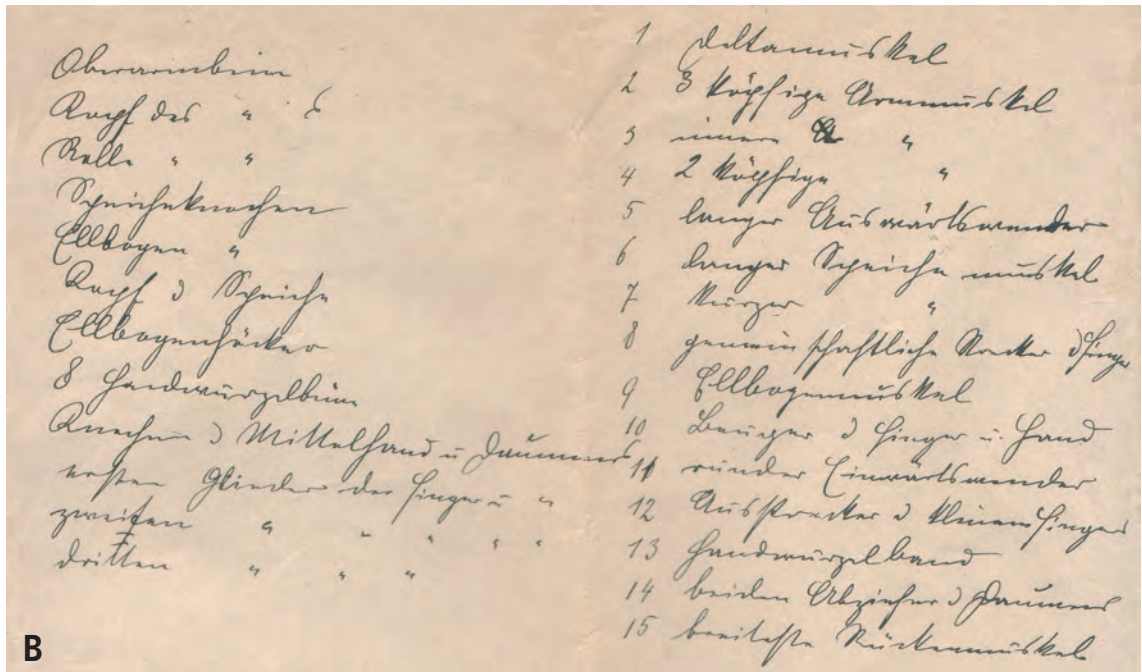 Oberarmbein
Kopf des " s
Rolle " "
Speicheknochen
Ellbogen "
Kopf d Speiche
Ellbogenhöcker
8 Handwurzelbein
Knochen d Mittelhand u Daumens
ersten Glieder der Finger u "
zweiten " " " " "
dritten " " "
1 Deltamuskel
2 3 köpfige Armmuskel
3 innere "
4 2 köpfige "
5 langer Auswärtswender
6 langer Speiche muskel
7 kurzer "
8 gemeinschaftliche Strecker d Finger
9 Ellbogenmuskel
10 Beuger d Finger u. Hand
11 runder Einwärtswender
12 Ausstrecker d kleinen Fingers
13 Handwurzelband
14 beiden Abzieher d Daumens
15 breiteste Rückenmuskel
B